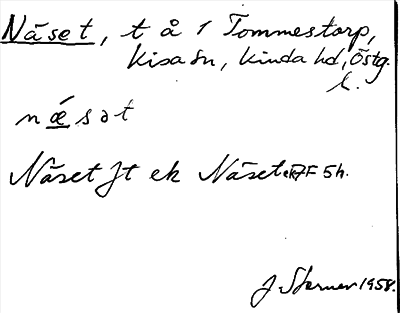 Näset, t å 1 Tommestorp,
Kisa sn, Kinda hd, Östg.
l.
næsət
Näset jt ek Näset. RÄF 5h.
J. Sterner 1958.